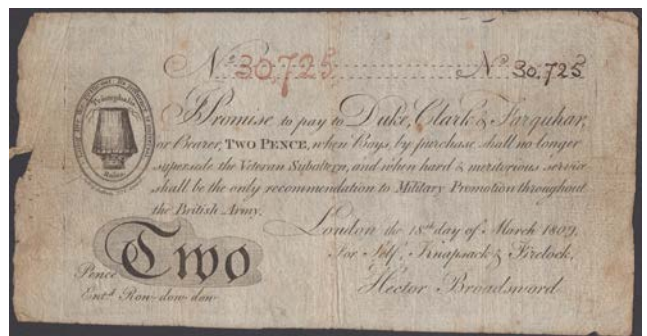 No 30,725 No 30,725
I Promise to pay to Duke, Clark & Farquhar,
or Bearer, TWO PENCE, when Boys, by purchase, shall no longer
supersede the Veteran Subaltern, and when hard & meritorious service
shall be the only recommendation to Military Promotion throughout
the British Army.
London the 18th day of March 1809,
For Self, Knapsack & Firelock,
Pence Two
Hector Broadsword
Entd Row-dow-dow